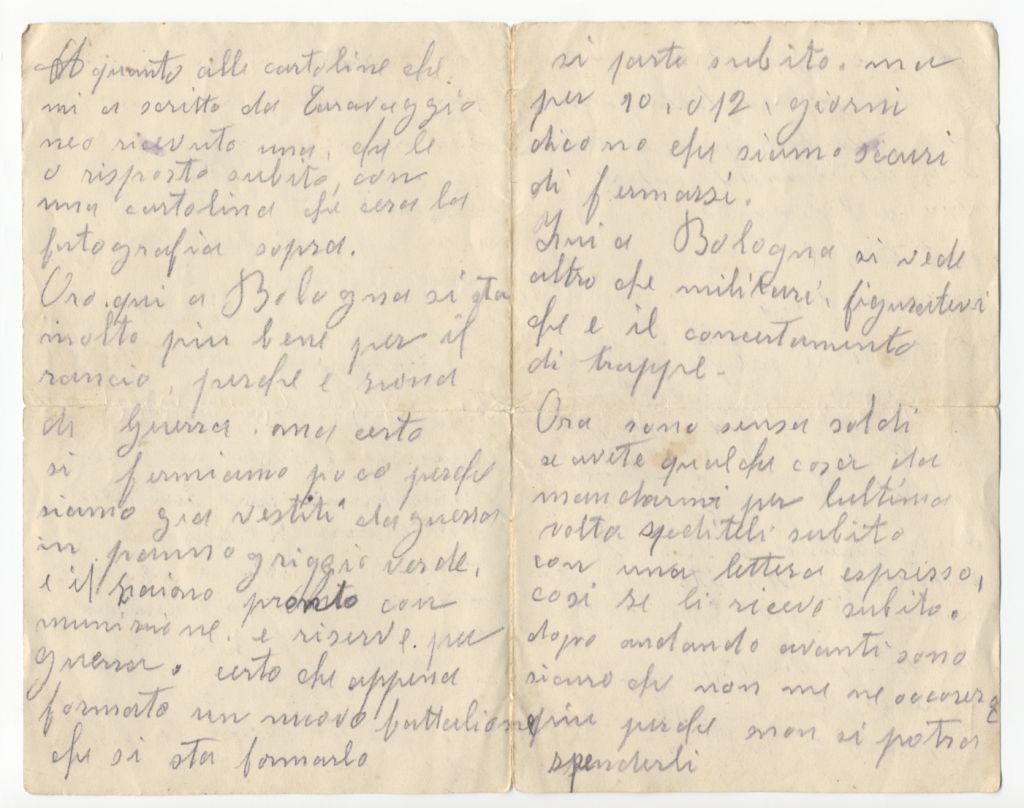 A quanto alle cartoline che
mi a scritto da Caravaggio
neo ricevuto una, che le
o risposto subito, con
una cartolina che cera la
fotografia sopra.
Ora qui a Bologna si sta
molto piu bene per il
rancio, perche e ziona
di Guerra. ma certo
si fermiamo poco perche
siamo gia vestiti da guerra
in panno griggio verde,
e il zaiono pronto con
munizione. e riserve. per
guerra. certo che appena
formato un nuovo battalione
che si sta formarlo
si parte subito. ma
per 10, o 12, giorni
dicono che siamo sicuri
di fermarsi.
Qui a Bologna si vede
altro che militari, figuratevi
che e il concertamento
di truppe.
Ora sono sensa soldi
se avete qualche cosa da
mandarmi per lultima
volta spediteli subito
con una lettera espresso,
cosi se li ricevo subito.
dopo andando avanti sono
sicuro che non me ne occorera
piu perche non si potra
spenderli